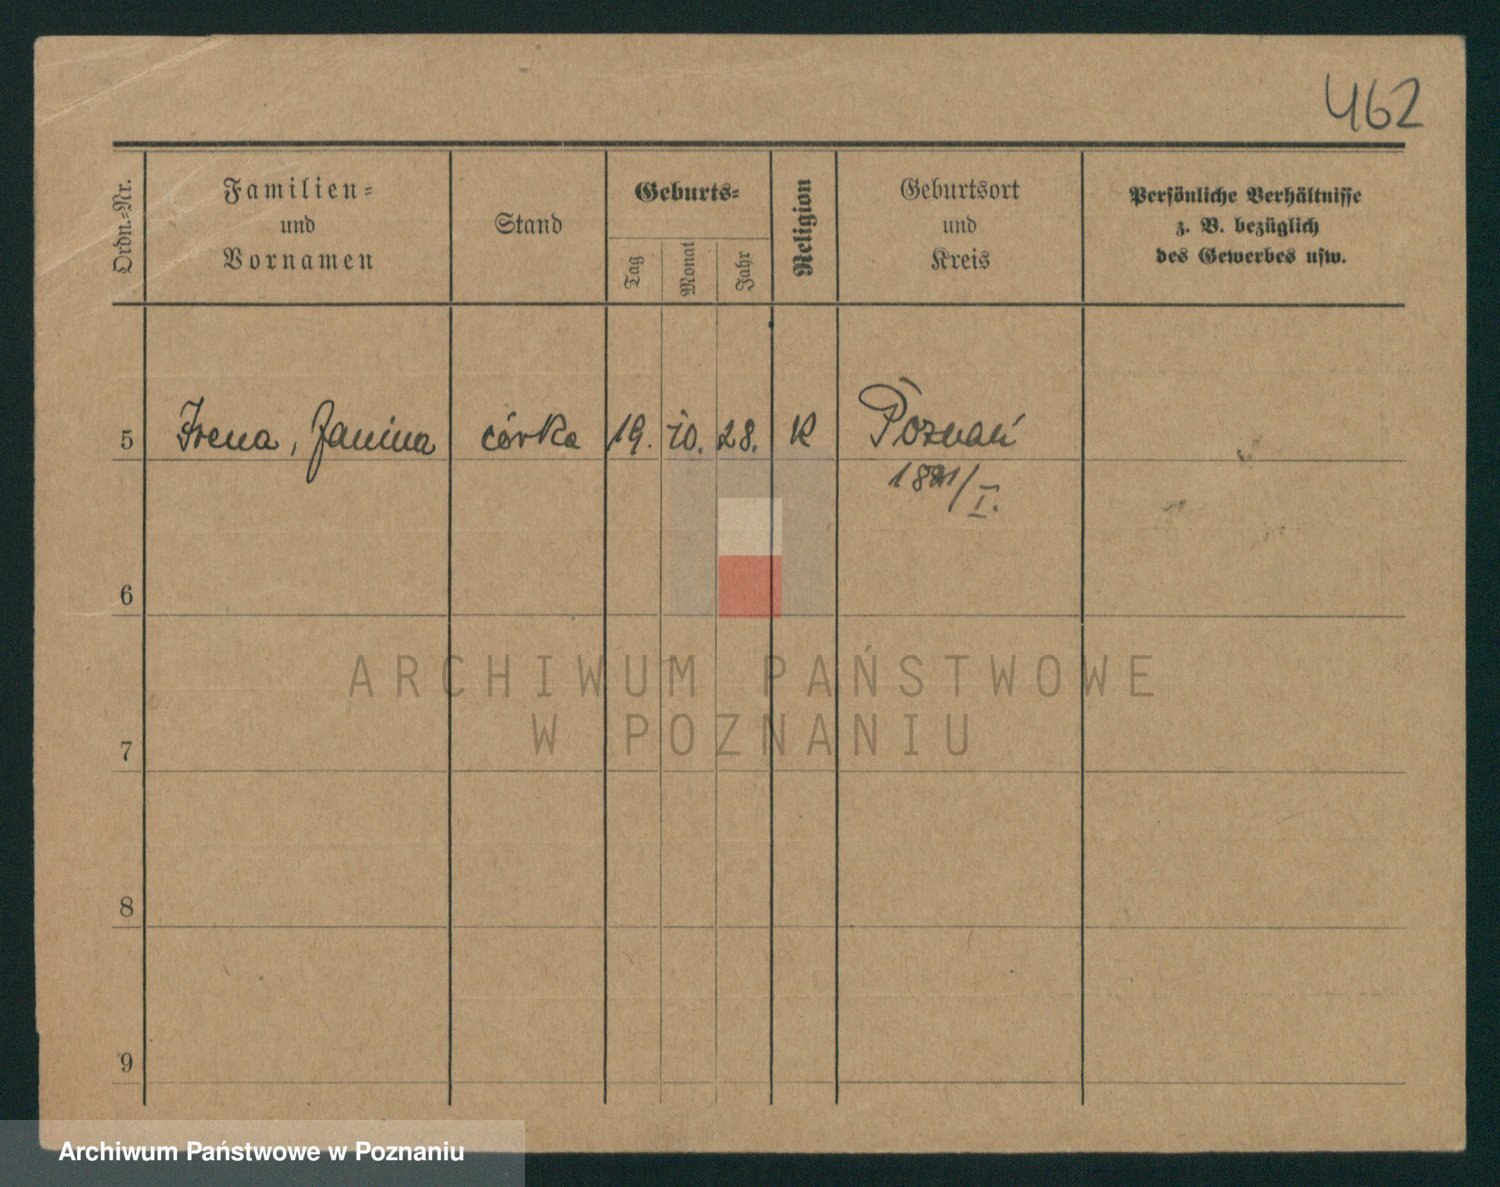 462
Ordn.-Nr.
Familien-
und
Vornamen
Stand
Geburts-
Tag
Monat
Jahr
Religion
Geburtsort
und
Kreis
Persönliche Verhältnisse
z. B. bezüglich
des Gewerbes usw.
5 Irena, Janina córka 19. 10. 28. K Poznań
6
7
8
9
ARCHIWUM PAŃSTWOWE
W POZNANIU
Archiwum Państwowe w Poznaniu